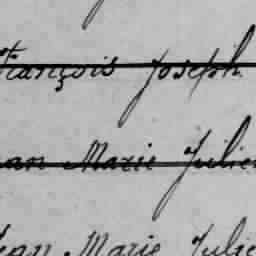 François Joseph
ean Marie Julien
Jean Marie Julie